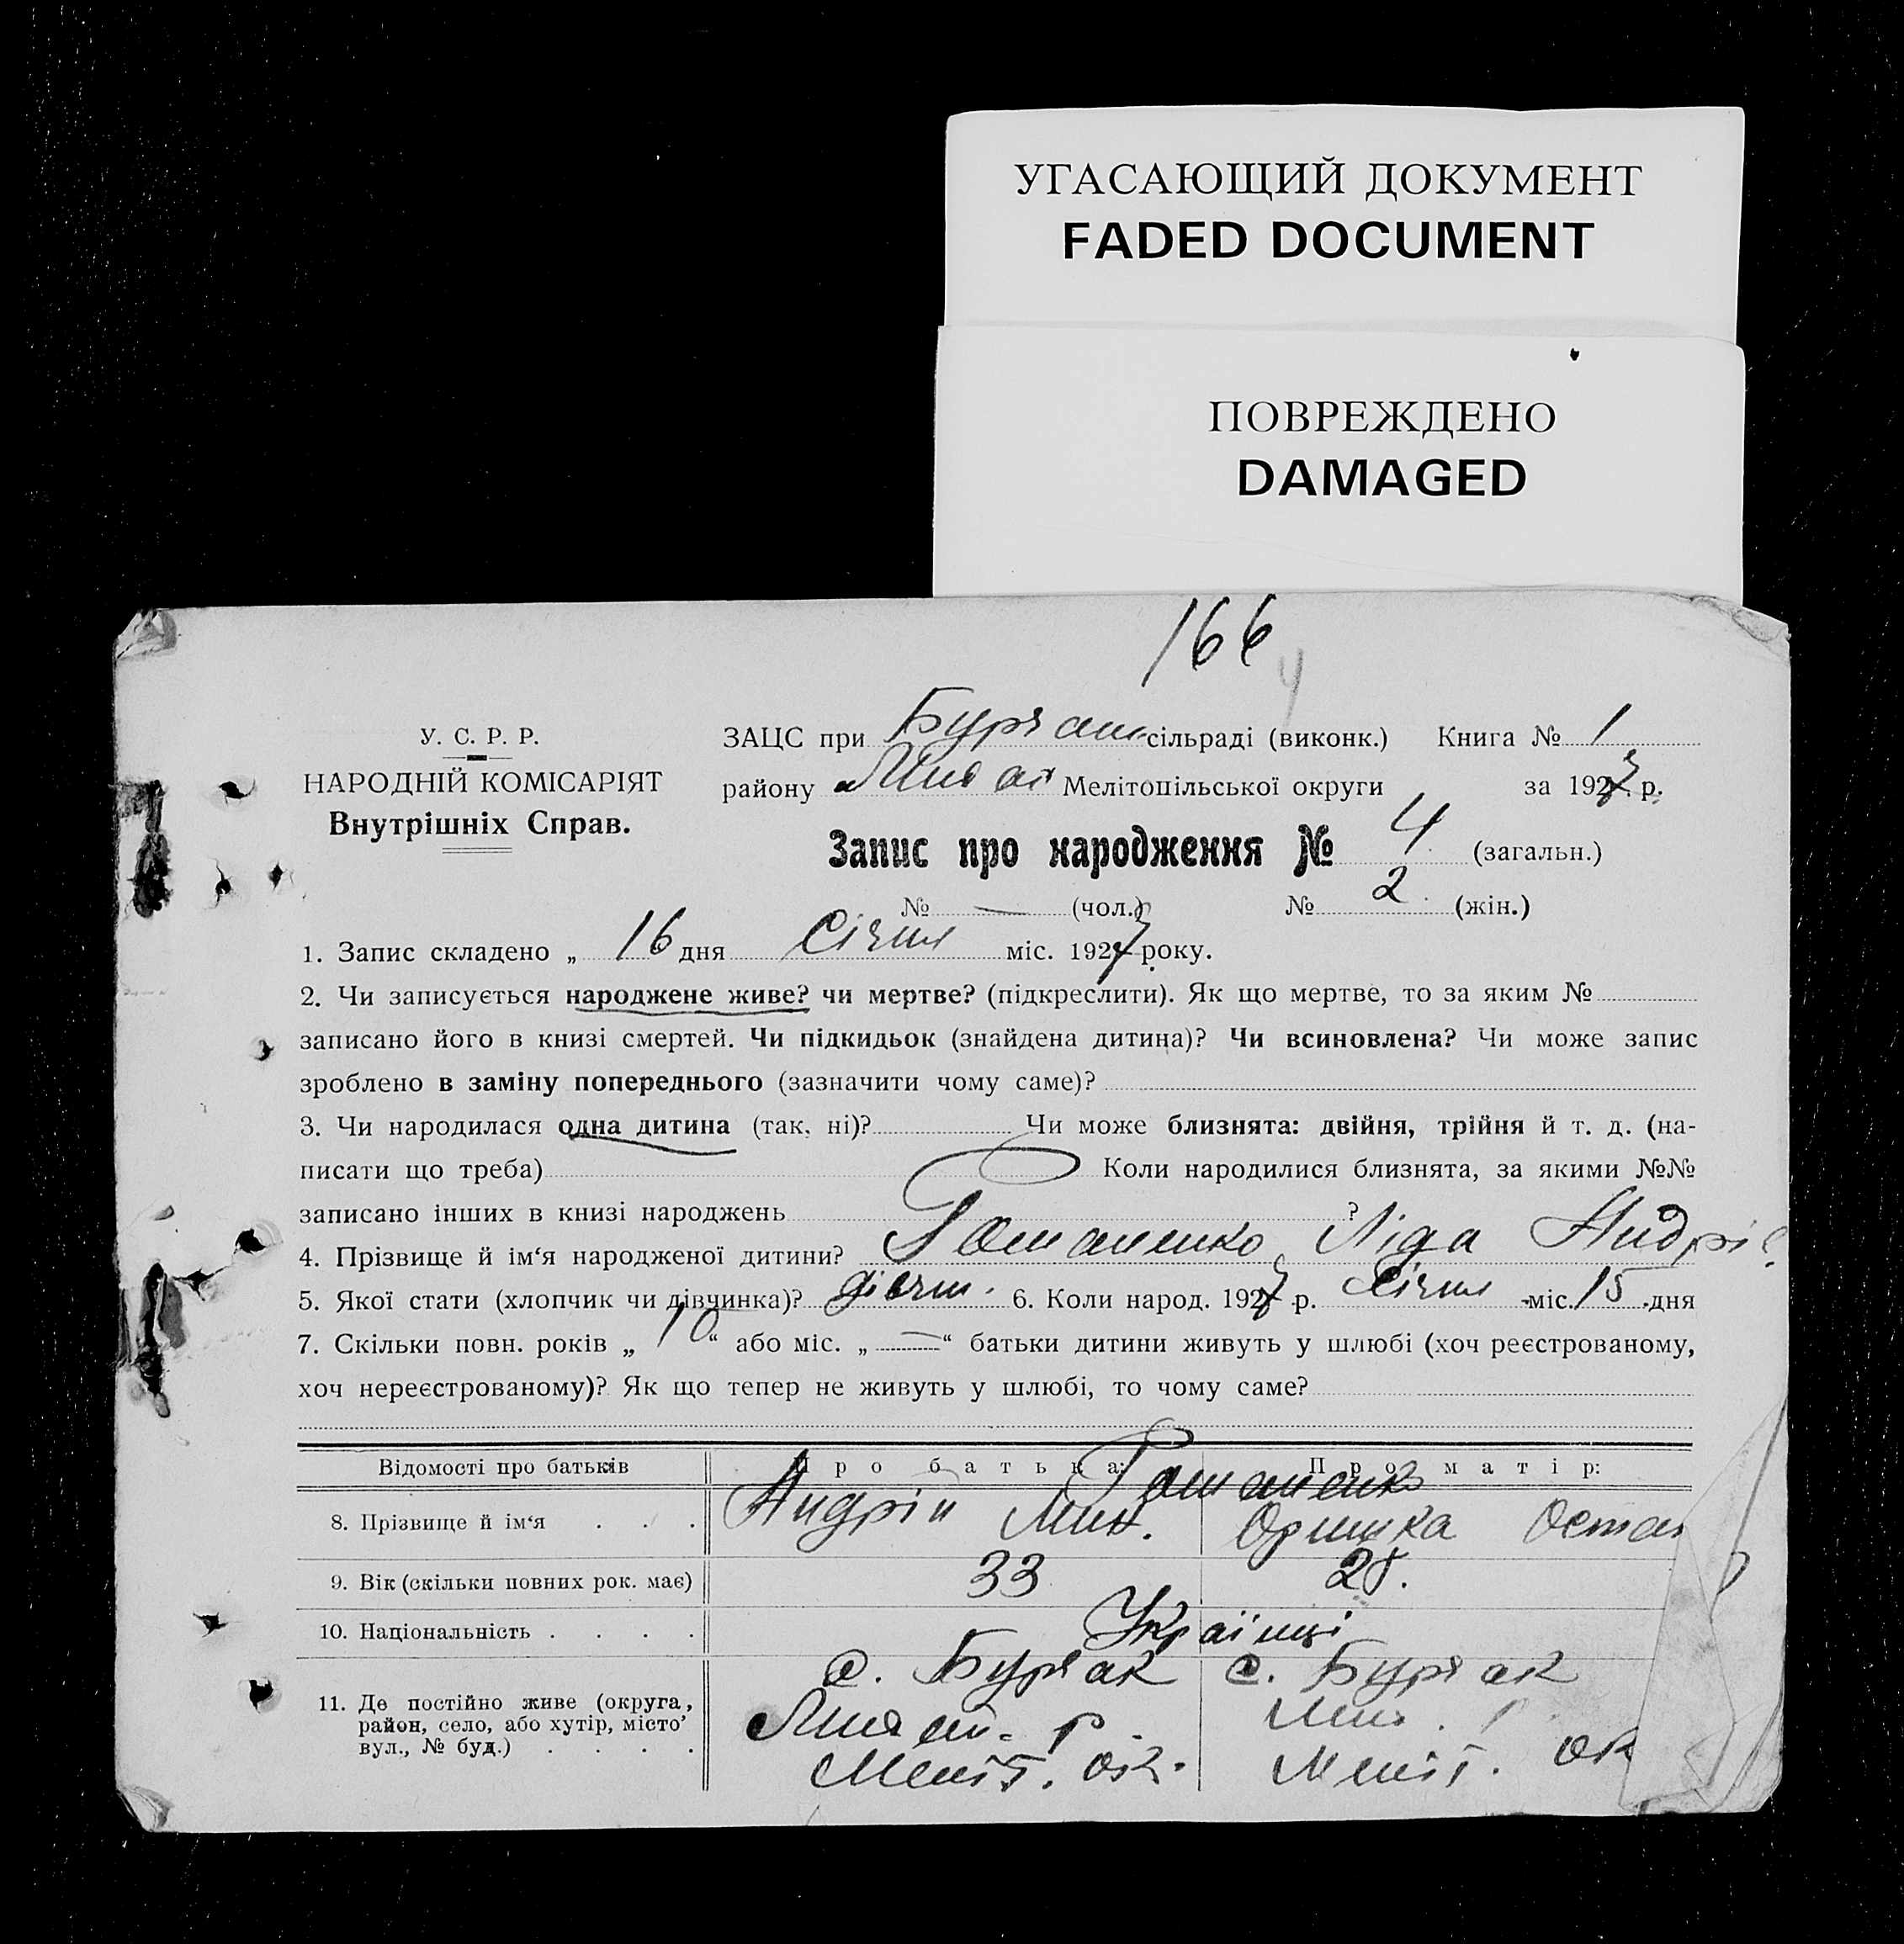 УГАСАЮЩИЙ ДОКУМЕНТ
FADED DOCUMENT
ПОВРЕЖДЕНО
DAMAGED
166
У. С. Р. Р.
НАРОДНІЙ КОМІСАРІЯТ
Внутрішніх Справ.
ЗАЦС при сільраді (виконк.) Книга № 1
району Мелітопільської округи за 1927 р.
Запис про народження № 4 (загальн.)
№ — (чол.) № 2. (жін.)
1. Запис складено „ 16 дня Січня міс. 1927 року.
2. Чи записується народжене живе? чи мертве? (підкреслити). Як що мертве, то за яким №
записано його в книзі смертей. Чи підкидьок (знайдена дитина)? Чи всиновлена? Чи може запис
зроблено в заміну попереднього (зазначити чому саме)?
3. Чи народилася одна дитина (так, ні)? Чи може близнята: двійня, трійня й т. д. (на-
писати що треба) Коли народилися близнята, за якими №№
записано інших в книзі народжень ?
4. Прізвище й ім‘я народженої дитини? Ліда Андрі
5. Якої стати (хлопчик чи дівчинка)? дівчин. 6. Коли народ. 1927 р. Січня міс. 15 дня
7. Скільки повн. років „ 10 “ або міс. „ — “ батьки дитини живуть у шлюбі (хоч реєстрованому,
хоч нереєстрованому)? Як що тепер не живуть у шлюбі, то чому саме?
Відомості про батьків Про батька: Про матір:
8. Прізвище й ім‘я . . . Андрій Мик. Оришка Остап
9. Вік (скільки повних рок. має) 33 28.
10. Національність . . . . Українці
11. Де постійно живе (округа, район, село, або хутір, місто’ вул., № буд.) . . . .
с. Бурчак с. Бурчак
р.
Меліт. ок. Меліт. ок